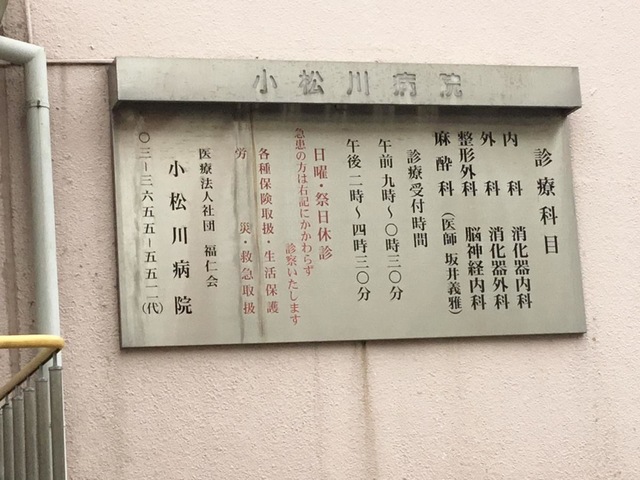 小松川病院
診療科目
内科 消化器内科
外科 消化器外科
整形外科 脳神経内科
麻酔科 (医師 坂井義雅)
診療受付時間
午前 九時〜〇時三〇分
午後 二時〜四時三〇分
日曜・祭日休診
急患の方は右記にかかわらず
診察いたします
各種保険取扱・生活保護
労災・救急取扱
医療法人社団 福仁会
小松川病院
〇三ー三六五五ー五五一一(代)